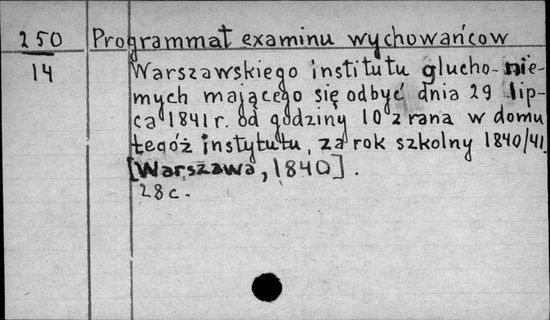 250 Programmat examinu wychowańcow
14 Warszawskiego institutu glucho-nie-
mych mającego się odbyć dnia 29 lip-
ca 1841 r. od godziny 10 z rana w domu
tegóż instytutu, za rok szkolny 1840/41.
[Warszawa, 1840].
28 c.